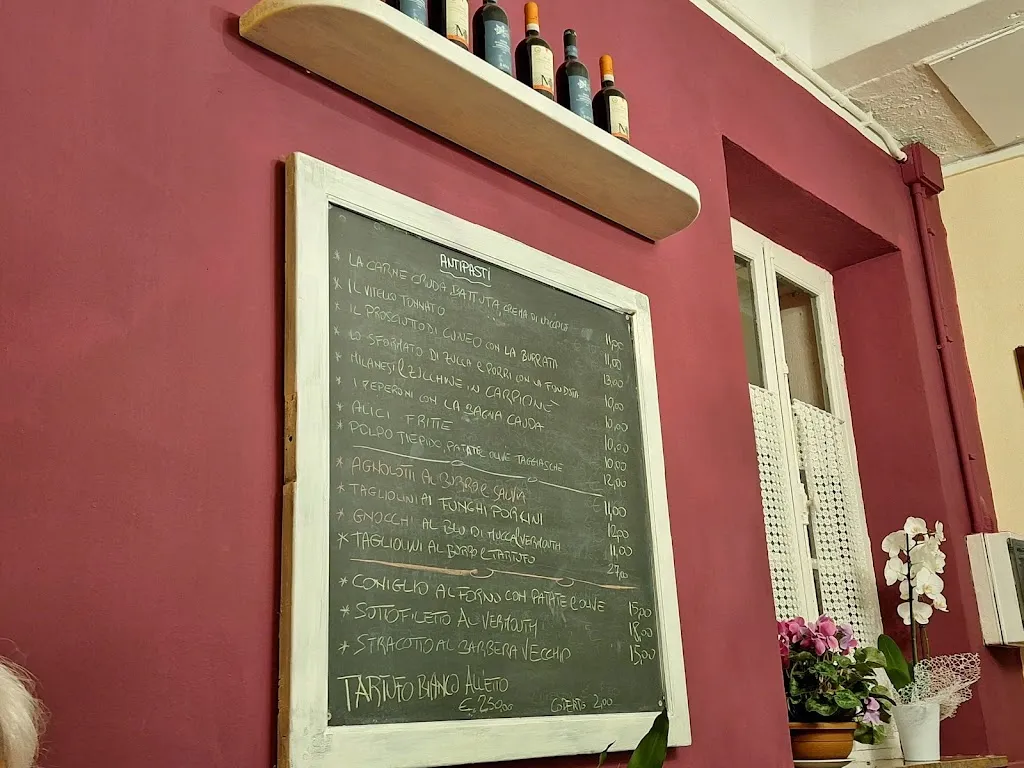 ANTIPASTI
* LA CARNE CRUDA BATTUTA, CREMA DI NOCCIOLE 11,00
* IL VITELLO TONNATO 11,00
* IL PROSCIUTTO DI CUNEO CON LA BURRATA 13,00
* LO SFORMATO DI ZUCCA E PORRI CON LA FONDUTA 10,00
* MILANESI & ZUCCHINE IN CARPIONE 10,00
* I PEPERONI CON LA BAGNA CAUDA 10,00
* ALICI FRITTE 10,00
* POLPO TIEPIDO, PATATE OLIVE TAGGIASCHE 12,00
* AGNOLOTTI AL BURRO E SALVIA 11,00
* TAGLIOLINI AI FUNGHI PORCINI 12,00
* GNOCCHI AL BLU DI MUCCA & VERMOUTH 11,00
* TAGLIOLINI AL BURRO E TARTUFO 27,00
* CONIGLIO AL FORNO CON PATATE & OLIVE 15,00
* SOTTOFILETTO AL VERMOUTH 18,00
* STRACOTTO AL BARBERA VECCHIO 15,00
TARTUFO BIANCO ALL'ETTO
€ 250,00 COPERTO 2,00